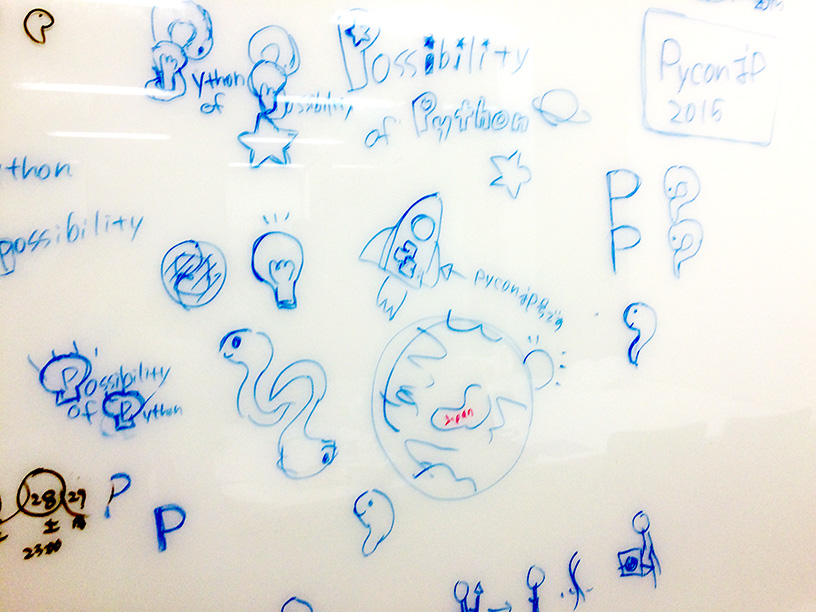 Python
of Possibility
Possibility
of Python
PyconJP
2015
ython
possibility
P
P
PyconJP
Japan
Possibility
of Python
28 29
土
2300
P
P